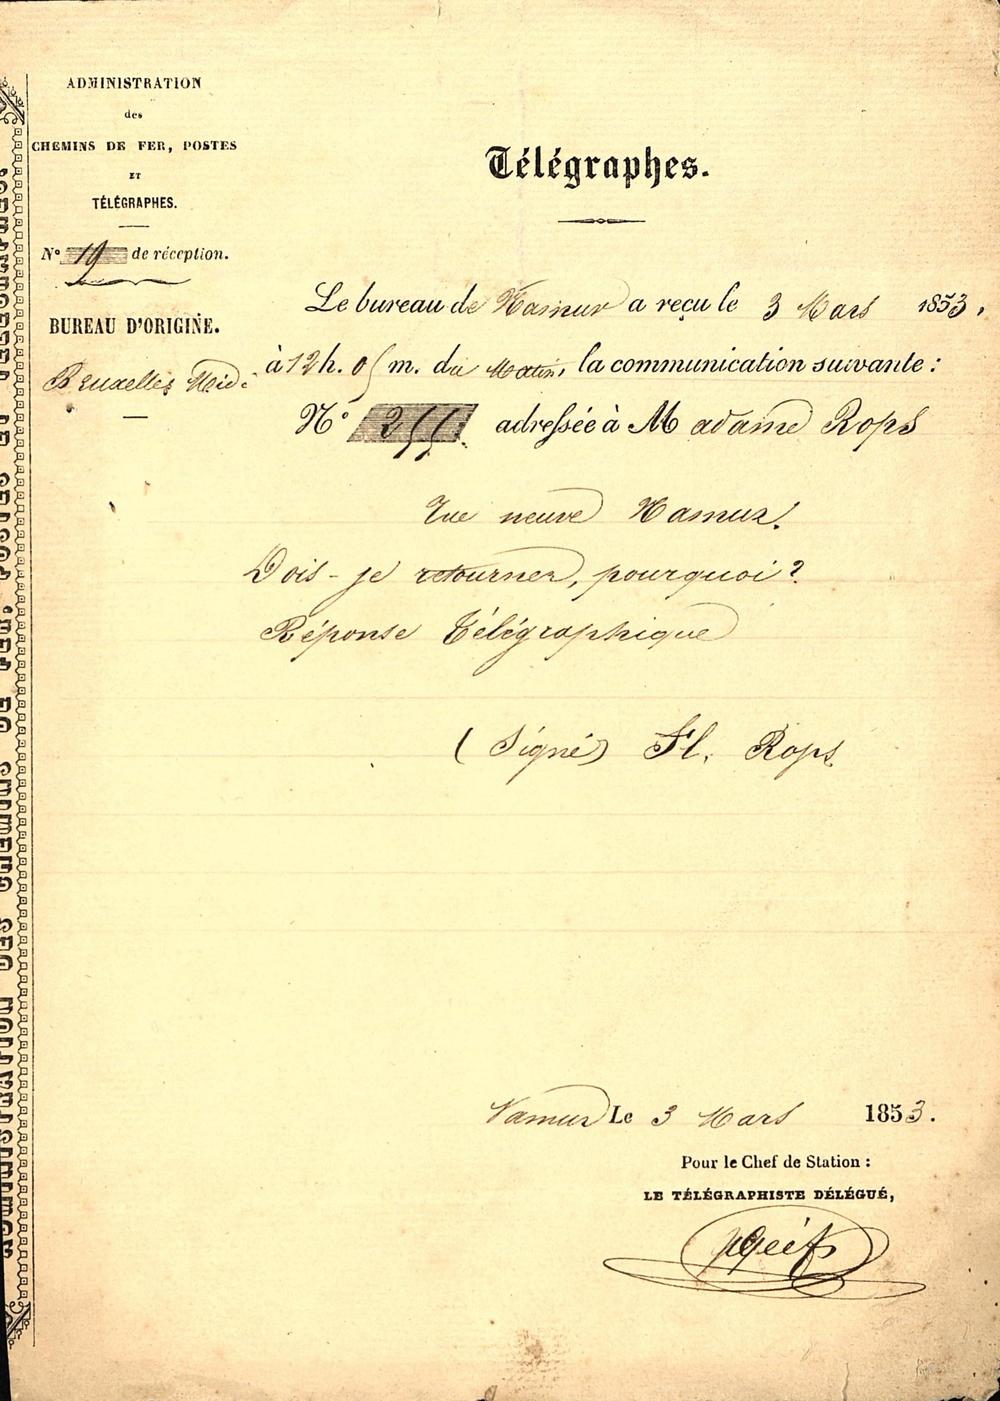 ADMINISTRATION
des
CHEMINS DE FER, POSTES
ET
TÉLÉGRAPHES.
N° 19 de réception.
BUREAU D'ORIGINE.
Bruxelles Midi
Télégraphes.
Le bureau de Namur a reçu le 3 Mars 1853,
à 12 h. 05 m. du Matin, la communication suivante :
N° 255. adressée à Madame Rops
rue neuve Namur.
Dois-je retourner, pourquoi ?
Réponse Télégraphique
(Signé) Fl. Rops
Namur Le 3 Mars 1853.
Pour le Chef de Station :
LE TÉLÉGRAPHISTE DÉLÉGUÉ,
ADMINISTRATION DES CHEMINS DE FER